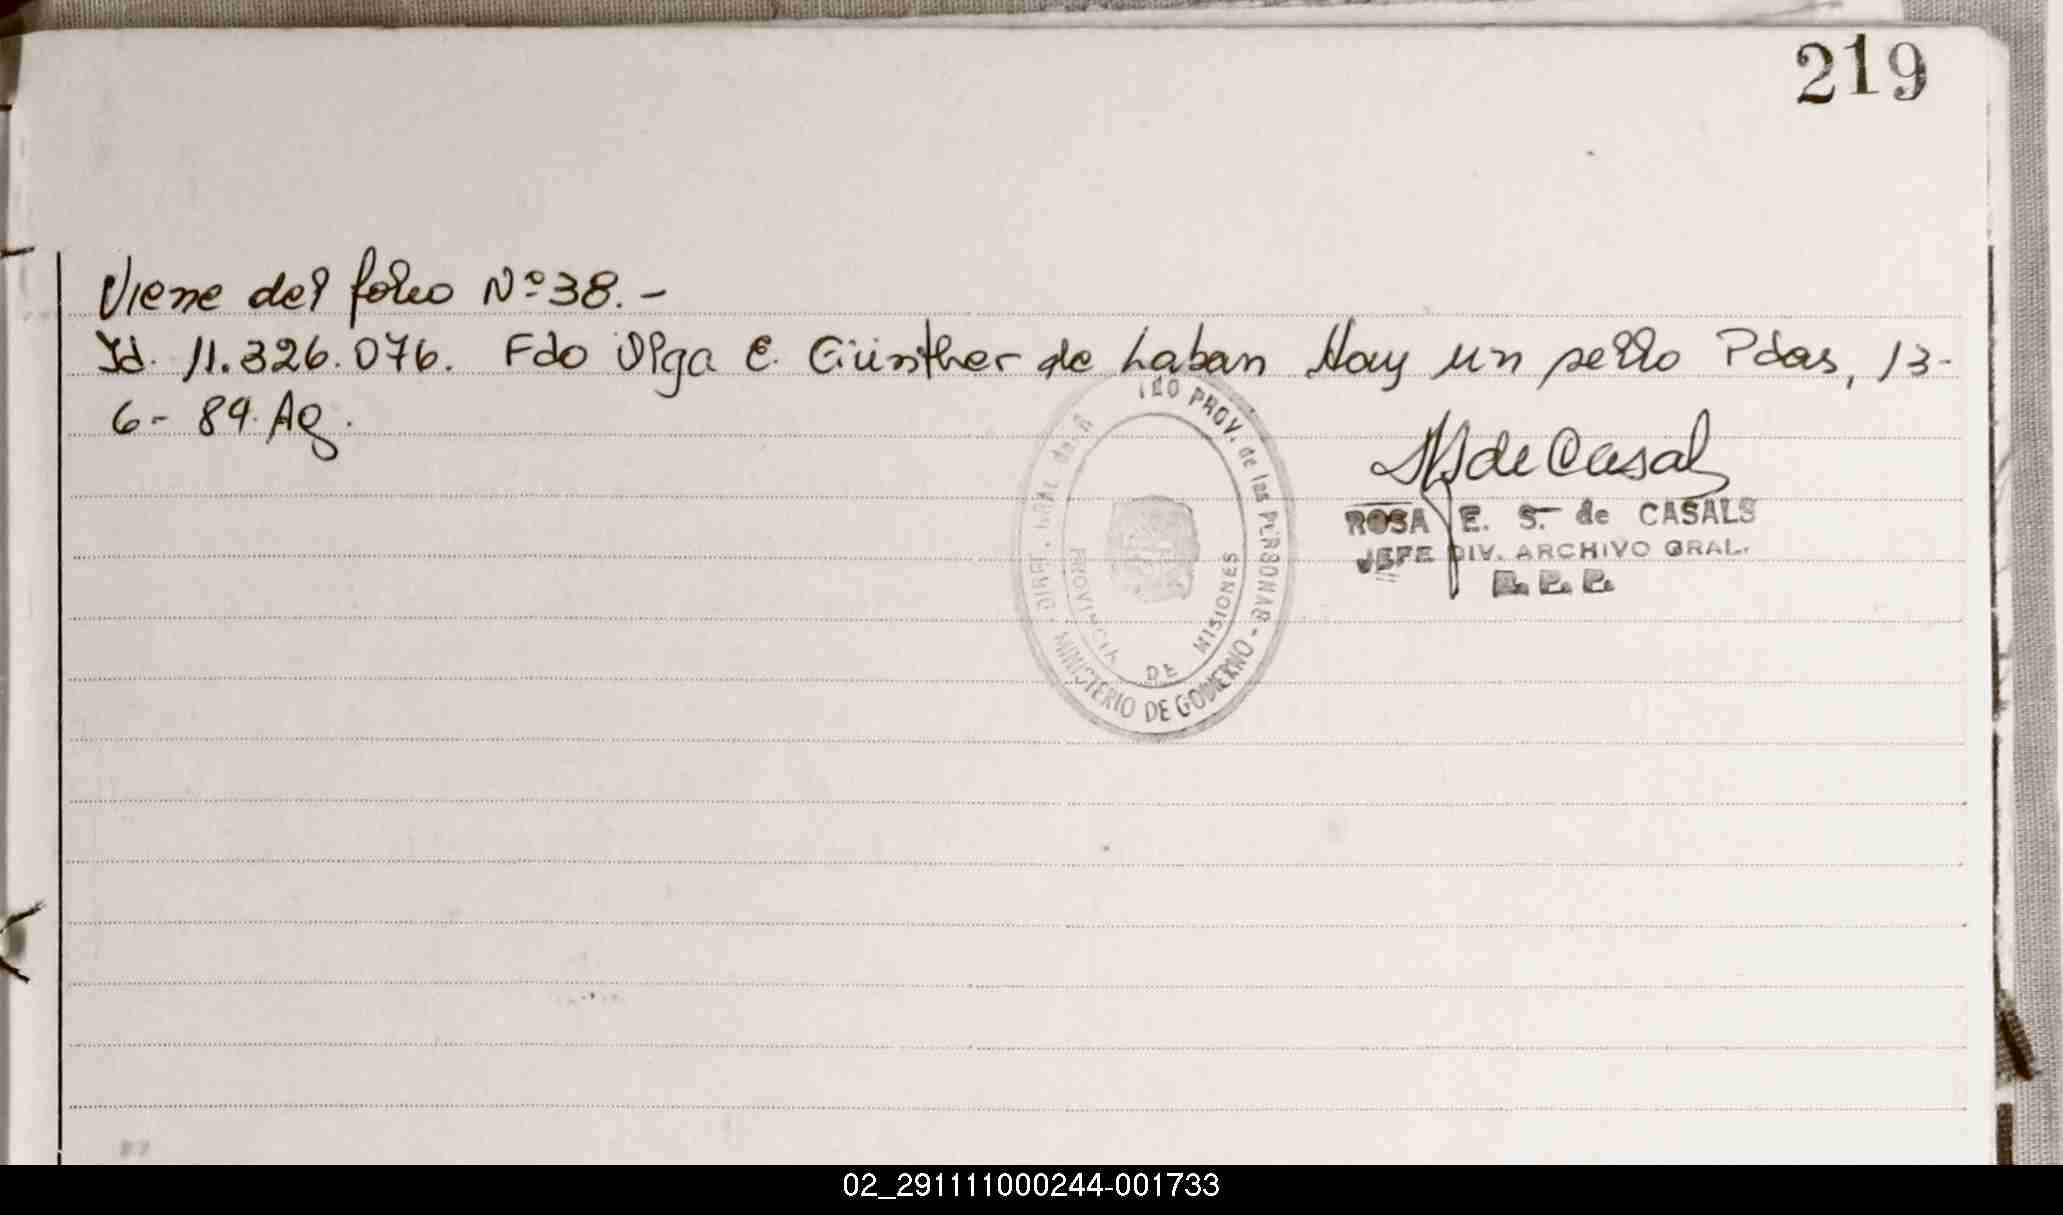 219
Viene del folio Nº 38.-
Id. 11.326.076. Fdo Olga E. Günther de Laban Hay un sello Pdas, 13-
6-89. Ag.
PROV. de las PERSONAS - MINISTERIO DE GOBIERNO - DIREC. GRAL. del
PROVINCIA DE MISIONES
de Casals
ROSA E. S. de CASALS
JEFE DIV. ARCHIVO GRAL.
02_291111000244-001733